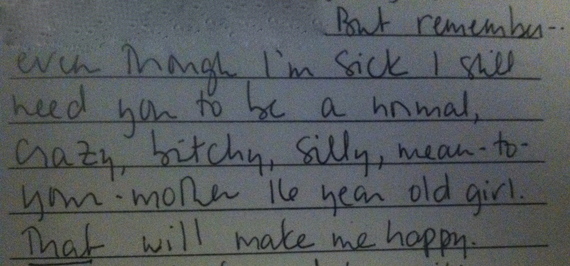 But remember--
even though I'm sick I still
need you to be a normal,
crazy, bitchy, silly, mean-to-
your-mother 16 year old girl.
That will make me happy.